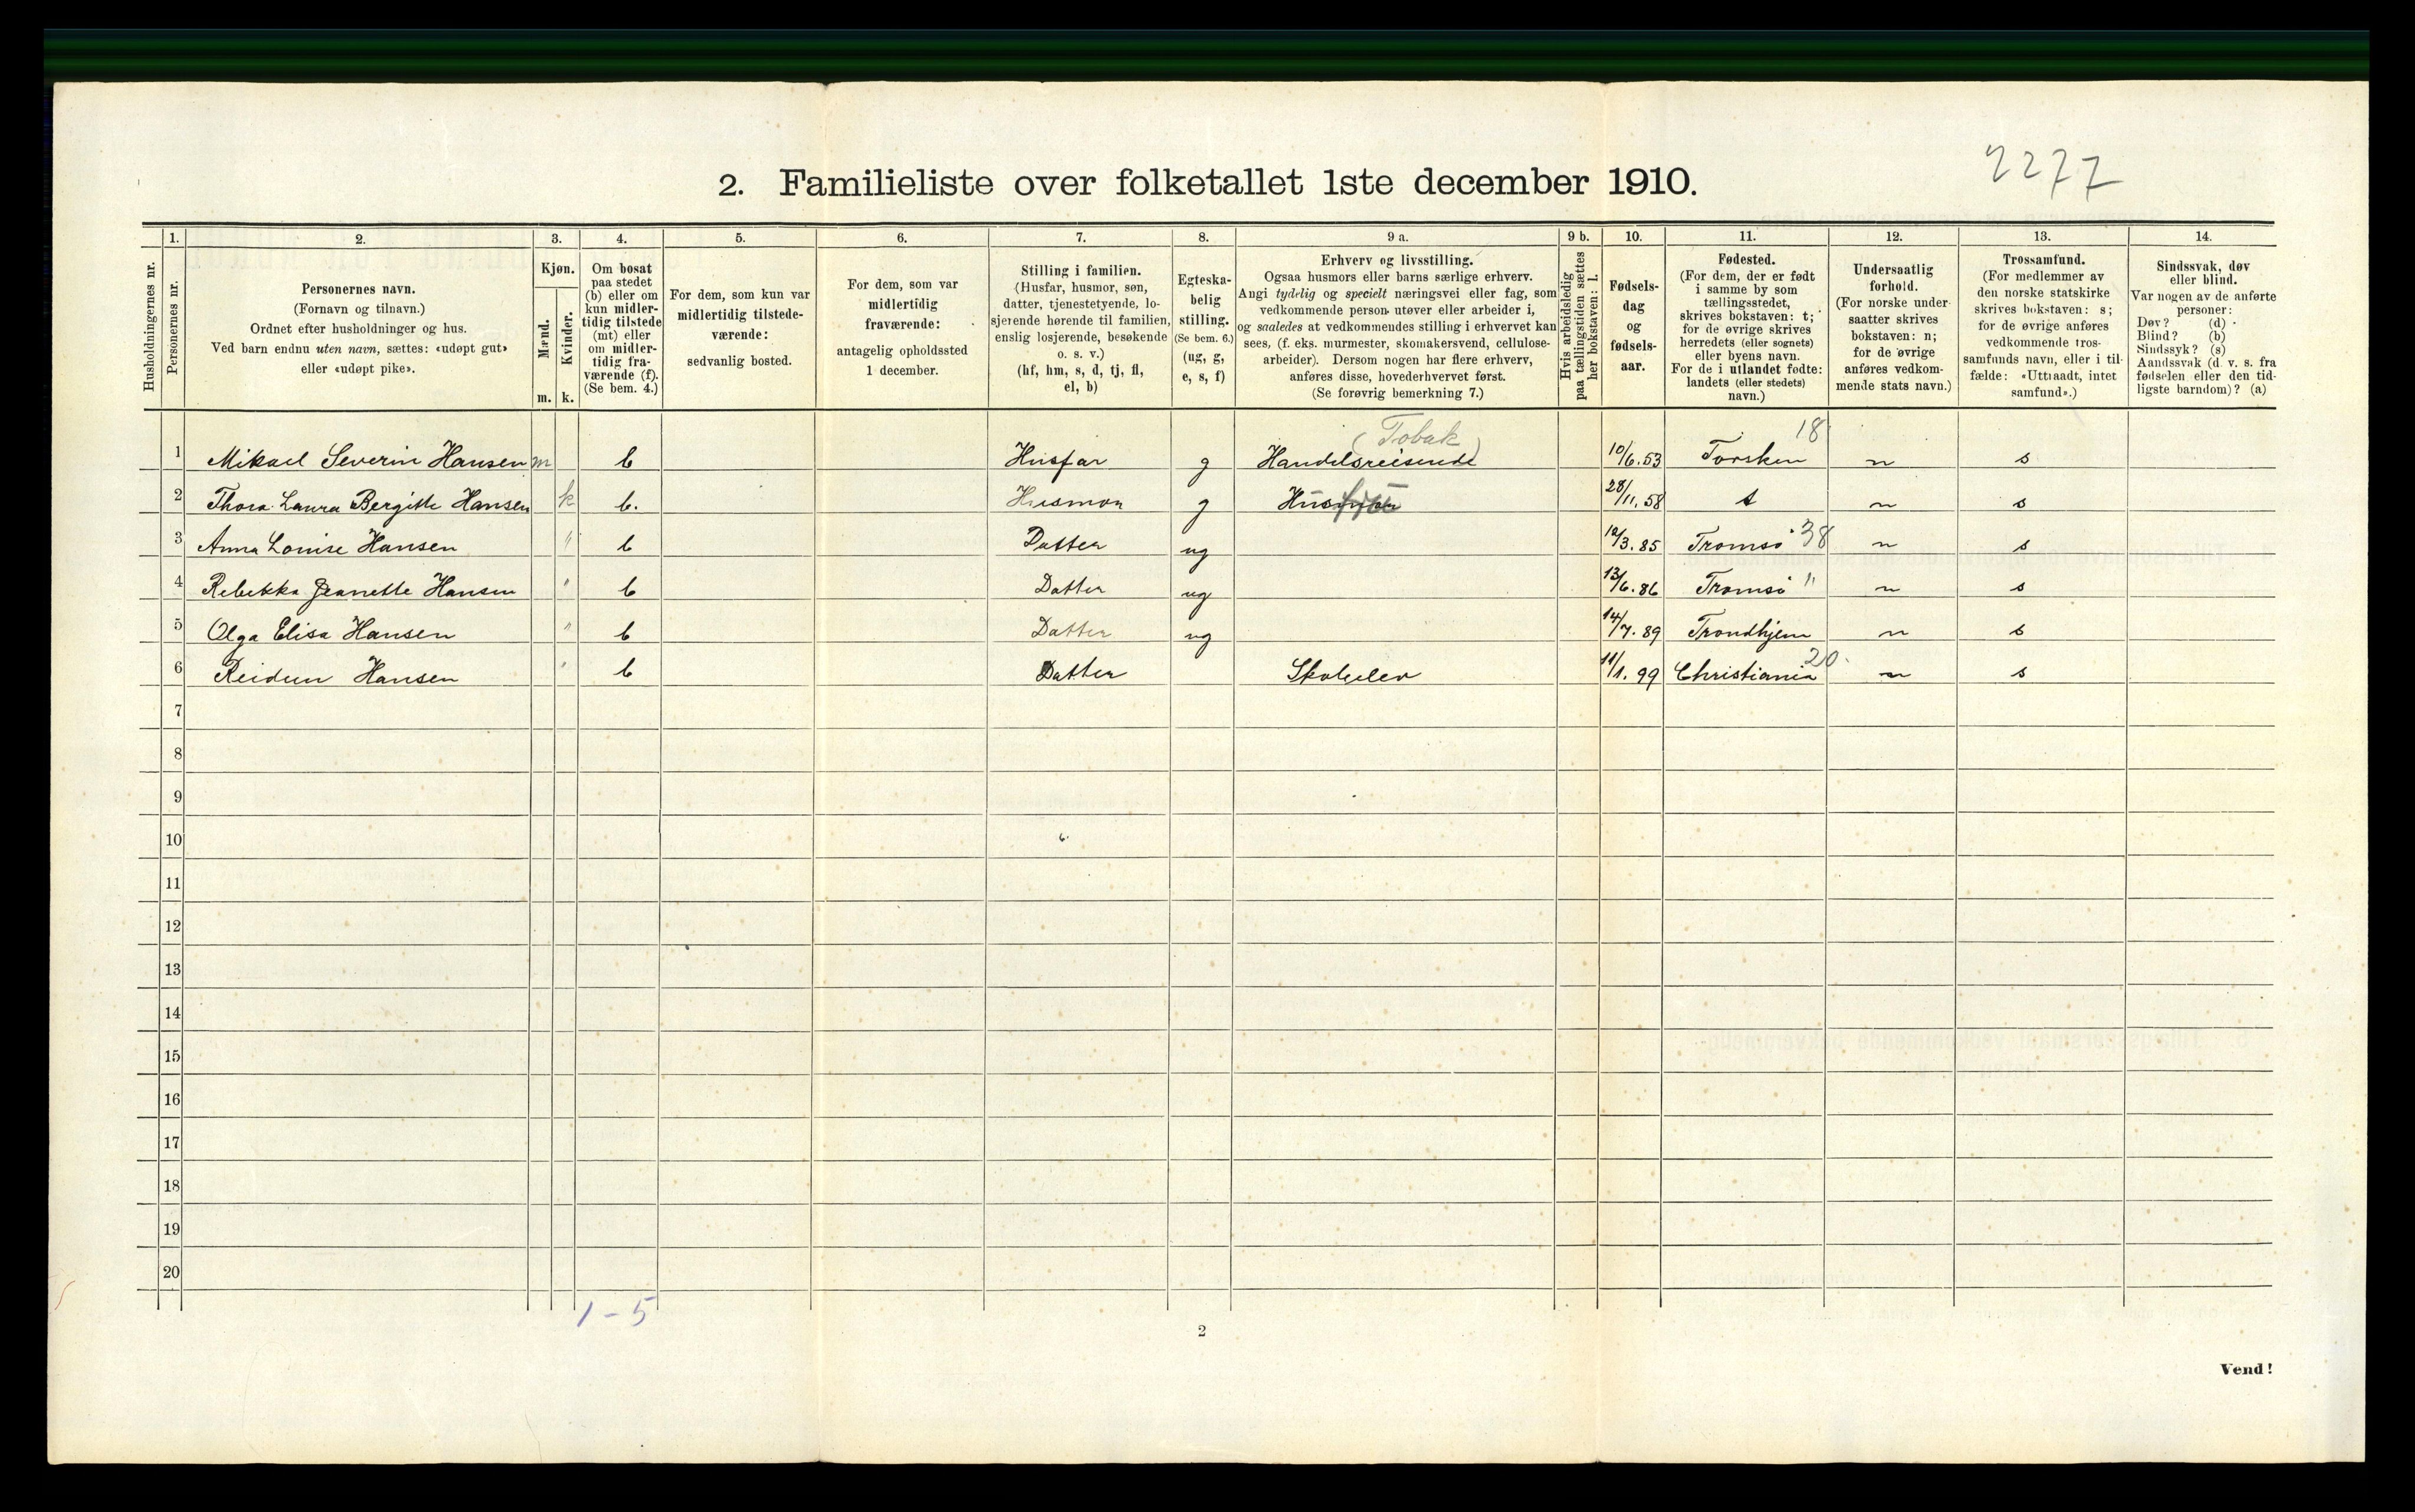 2277
2. Familieliste over folketallet 1ste december 1910.
Husholdningernes nr.
1.
Personernes nr.
2.
Personernes navn.
(Fornavn og tilnavn.)
Ordnet efter husholdninger og hus.
Ved barn endnu uten navn, sættes: «udøpt gut»
eller «udøpt pike».
3.
Kjøn.
Mænd.
Kvinder.
m. k.
4.
Om bosat
paa stedet
(b) eller om
kun midler-
tidig tilstede
(mt) eller
om midler-
tidig fra-
værende (f).
(Se bem. 4.)
5.
For dem, som kun var
midlertidig tilstede-
værende:
sedvanlig bosted.
6.
For dem, som var
midlertidig
fraværende:
antagelig opholdssted
1 december.
7.
Stilling i familien.
(Husfar, husmor, søn,
datter, tjenestetyende, lo-
sjerende hørende til familien,
enslig losjerende, besøkende
o. s. v.)
(hf, hm, s, d, tj, fl,
el, b)
8.
Egteska-
belig
stilling.
(Se bem. 6.)
(ug, g,
e, s, f)
9 a.
Erhverv og livsstilling.
Ogsaa husmors eller barns særlige erhverv.
Angi tydelig og specielt næringsvei eller fag, som
vedkommende person utøver eller arbeider i,
og saaledes at vedkommendes stilling i erhvervet kan
sees, (f. eks. murmester, skomakersvend, cellulose-
arbeider). Dersom nogen har flere erhverv,
anføres disse, hovederhvervet først.
(Se forøvrig bemerkning 7.)
9 b.
Hvis arbeidsledig
paa tællingstiden sættes
her bokstaven: l.
10.
Fødsels-
dag
og
fødsels-
aar.
11.
Fødested.
(For dem, der er født
i samme by som
tællingsstedet,
skrives bokstaven: t;
for de øvrige skrives
herredets (eller sognets)
eller byens navn.
For de i utlandet fødte:
landets (eller stedets)
navn.)
12.
Undersaatlig
forhold.
(For norske under-
saatter skrives
bokstaven: n;
for de øvrige
anføres vedkom-
mende stats navn.)
13.
Trossamfund.
(For medlemmer av
den norske statskirke
skrives bokstaven: s;
for de øvrige anføres
vedkommende tros-
samfunds navn, eller i til-
fælde: «Uttraadt, intet
samfund».)
14.
Sindssvak, døv
eller blind.
Var nogen av de anførte
personer:
Døv? (d)
Blind? (b)
Sindssyk? (s)
Aandssvak (d. v. s. fra
fødselen eller den tid-
ligste barndom)? (a)
(Tobak) 18
1 Mikael Severin Hansen m b Husfar g Handelsreisende 10/6.53 Torsken n s
2 Thora Laura Bergitte Hansen k b. Husmor g 28/11.58 t n s
3 Anna Louise Hansen " b Datter ug 12/3.85 Tromsø 38 n s
4 Rebekka Jeanette Hansen " b Datter ug 13/6.86 Tromsø " n s
5 Olga Elisa Hansen " b Datter ug 14/7.89 Trondhjem n s
6 Reidun Hansen " b Datter Skoleelev 11/1.99 Christiania 20 n s
7
8
9
10
11
12
13
14
15
16
17
18
19
20
1-5
2
Vend!